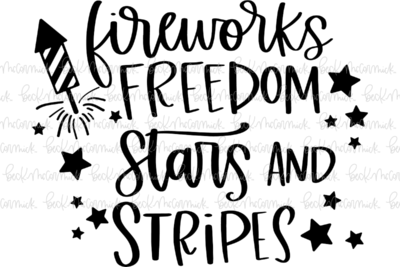 fireworks
FREEDOM
stars AND
STRIPES